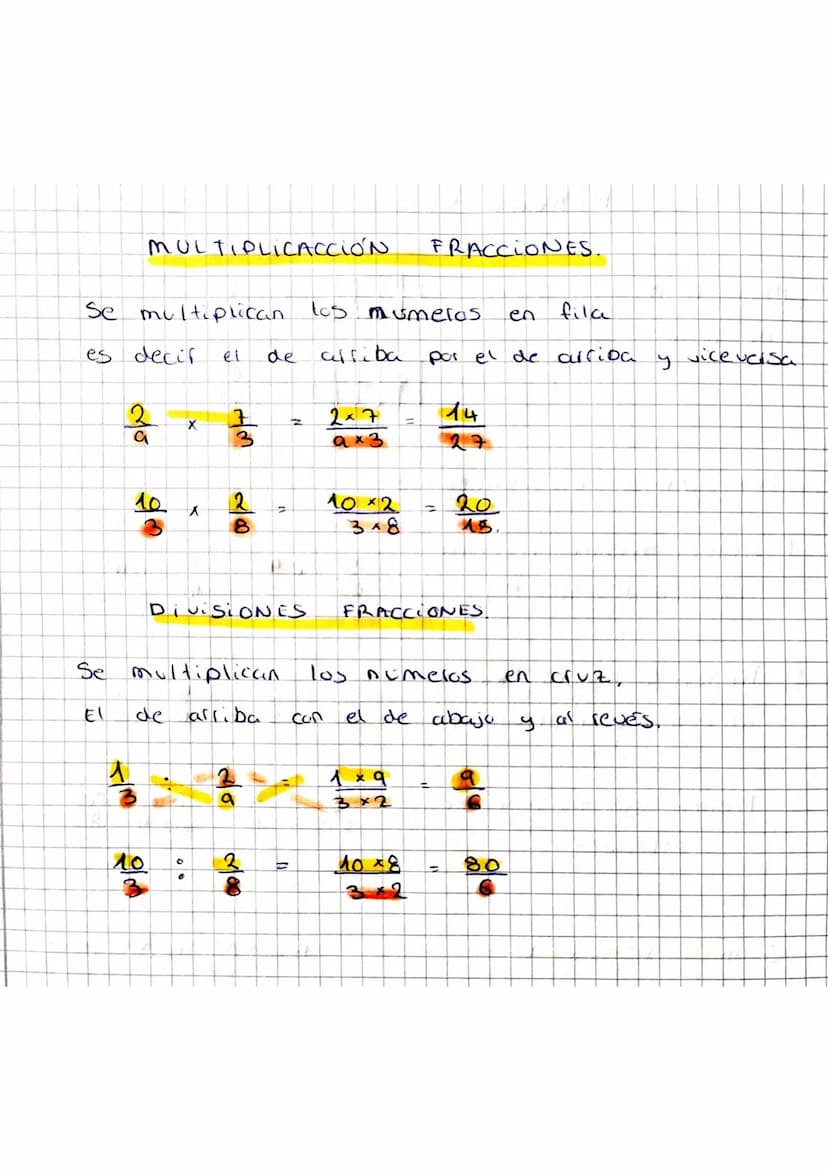 MULTIPLICACCIÓN FRACCIONES.
Se multiplican los números en fila
es decir el de arriba por el de arriba y viceversa
2/9 x 7/3 = 2x7/9x3 = 14/27
10/3 x 2/8 = 10x2/3x8 = 20/18.
DiViSiONES FRACCiONES.
Se multiplican los números en cruz,
El de arriba con el de abajo y al revés.
1/3 : 2/9 = 1x9/3x2 = 9/6
10/3 : 2/8 = 10x8/3x2 = 80/6